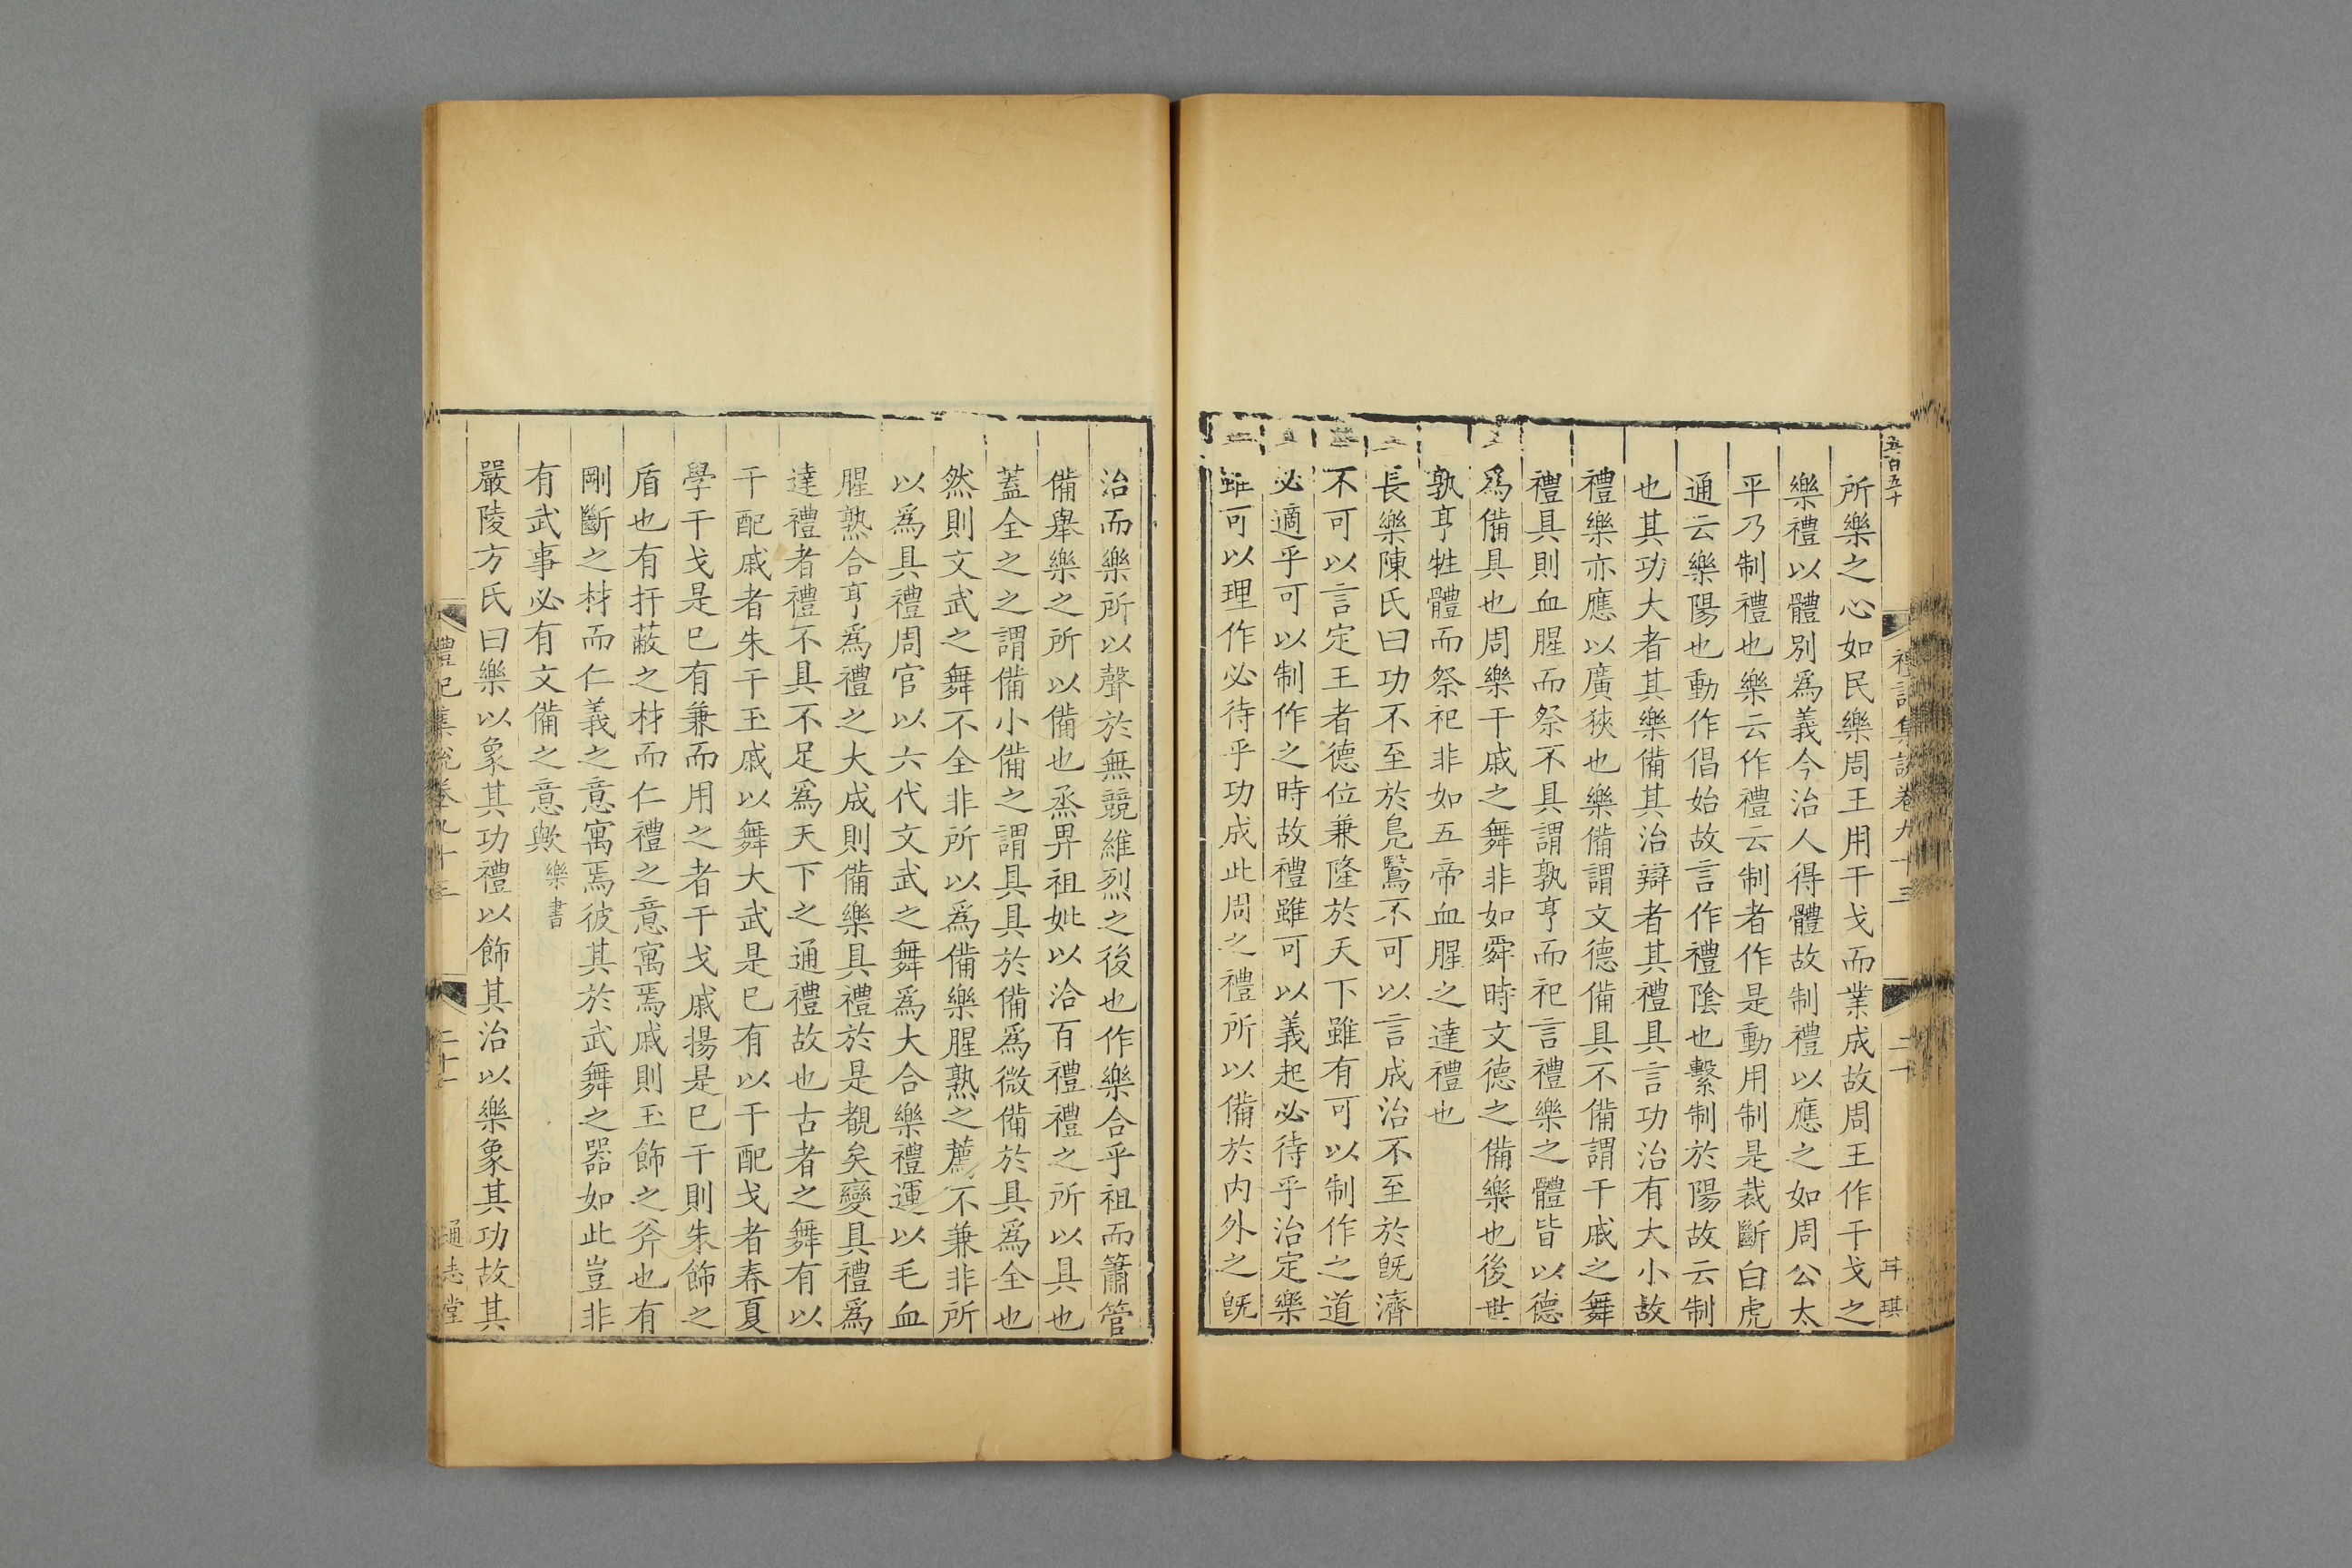 五百五十
禮記集說卷九十三
二十
耳 琪
所樂之心如民樂周王用干戈而業成故周王作干戈之
樂禮以體別爲義今治人得體故制禮以應之如周公太
平乃制禮也樂云作禮云制者作是動用制是裁斷白虎
通云樂陽也動作倡始故言作禮陰也繫制於陽故云制
也其功大者其樂備其治辯者其禮具言功治有大小故
禮樂亦應以廣狹也樂備謂文德備具不備謂干戚之舞
禮具則血腥而祭不具謂孰亨而祀言禮樂之體皆以德
爲備具也周樂干戚之舞非如舜時文德之備樂也後世
孰亨牲體而祭祀非如五帝血腥之達禮也
長樂陳氏曰功不至於鳧鷖不可以言成治不至於旣濟
不可以言定王者德位兼隆於天下雖有可以制作之道
必適乎可以制作之時故禮雖可以義起必待乎治定樂
雖可以理作必待乎功成此周之禮所以備於內外之旣
治而樂所以聲於無競維烈之後也作樂合乎祖而簫管
備舉樂之所以備也烝畀祖妣以洽百禮禮之所以具也
蓋全之之謂備小備之謂具具於備爲微備於具爲全也
然則文武之舞不全非所以爲備樂腥熟之薦不兼非所
以爲具禮周官以六代文武之舞爲大合樂禮運以毛血
腥熟合亨爲禮之大成則備樂具禮於是覩矣變具禮爲
達禮者禮不具不足爲天下之通禮故也古者之舞有以
干配戚者朱干玉戚以舞大武是已有以干配戈者春夏
學干戈是已有兼而用之者干戈戚揚是已干則朱飾之
盾也有扞蔽之材而仁禮之意寓焉戚則玉飾之斧也有
剛斷之材而仁義之意寓焉彼其於武舞之器如此豈非
有武事必有文備之意歟樂書
嚴陵方氏曰樂以象其功禮以飾其治以樂象其功故其
禮記集說卷九十三
二十一
通志堂